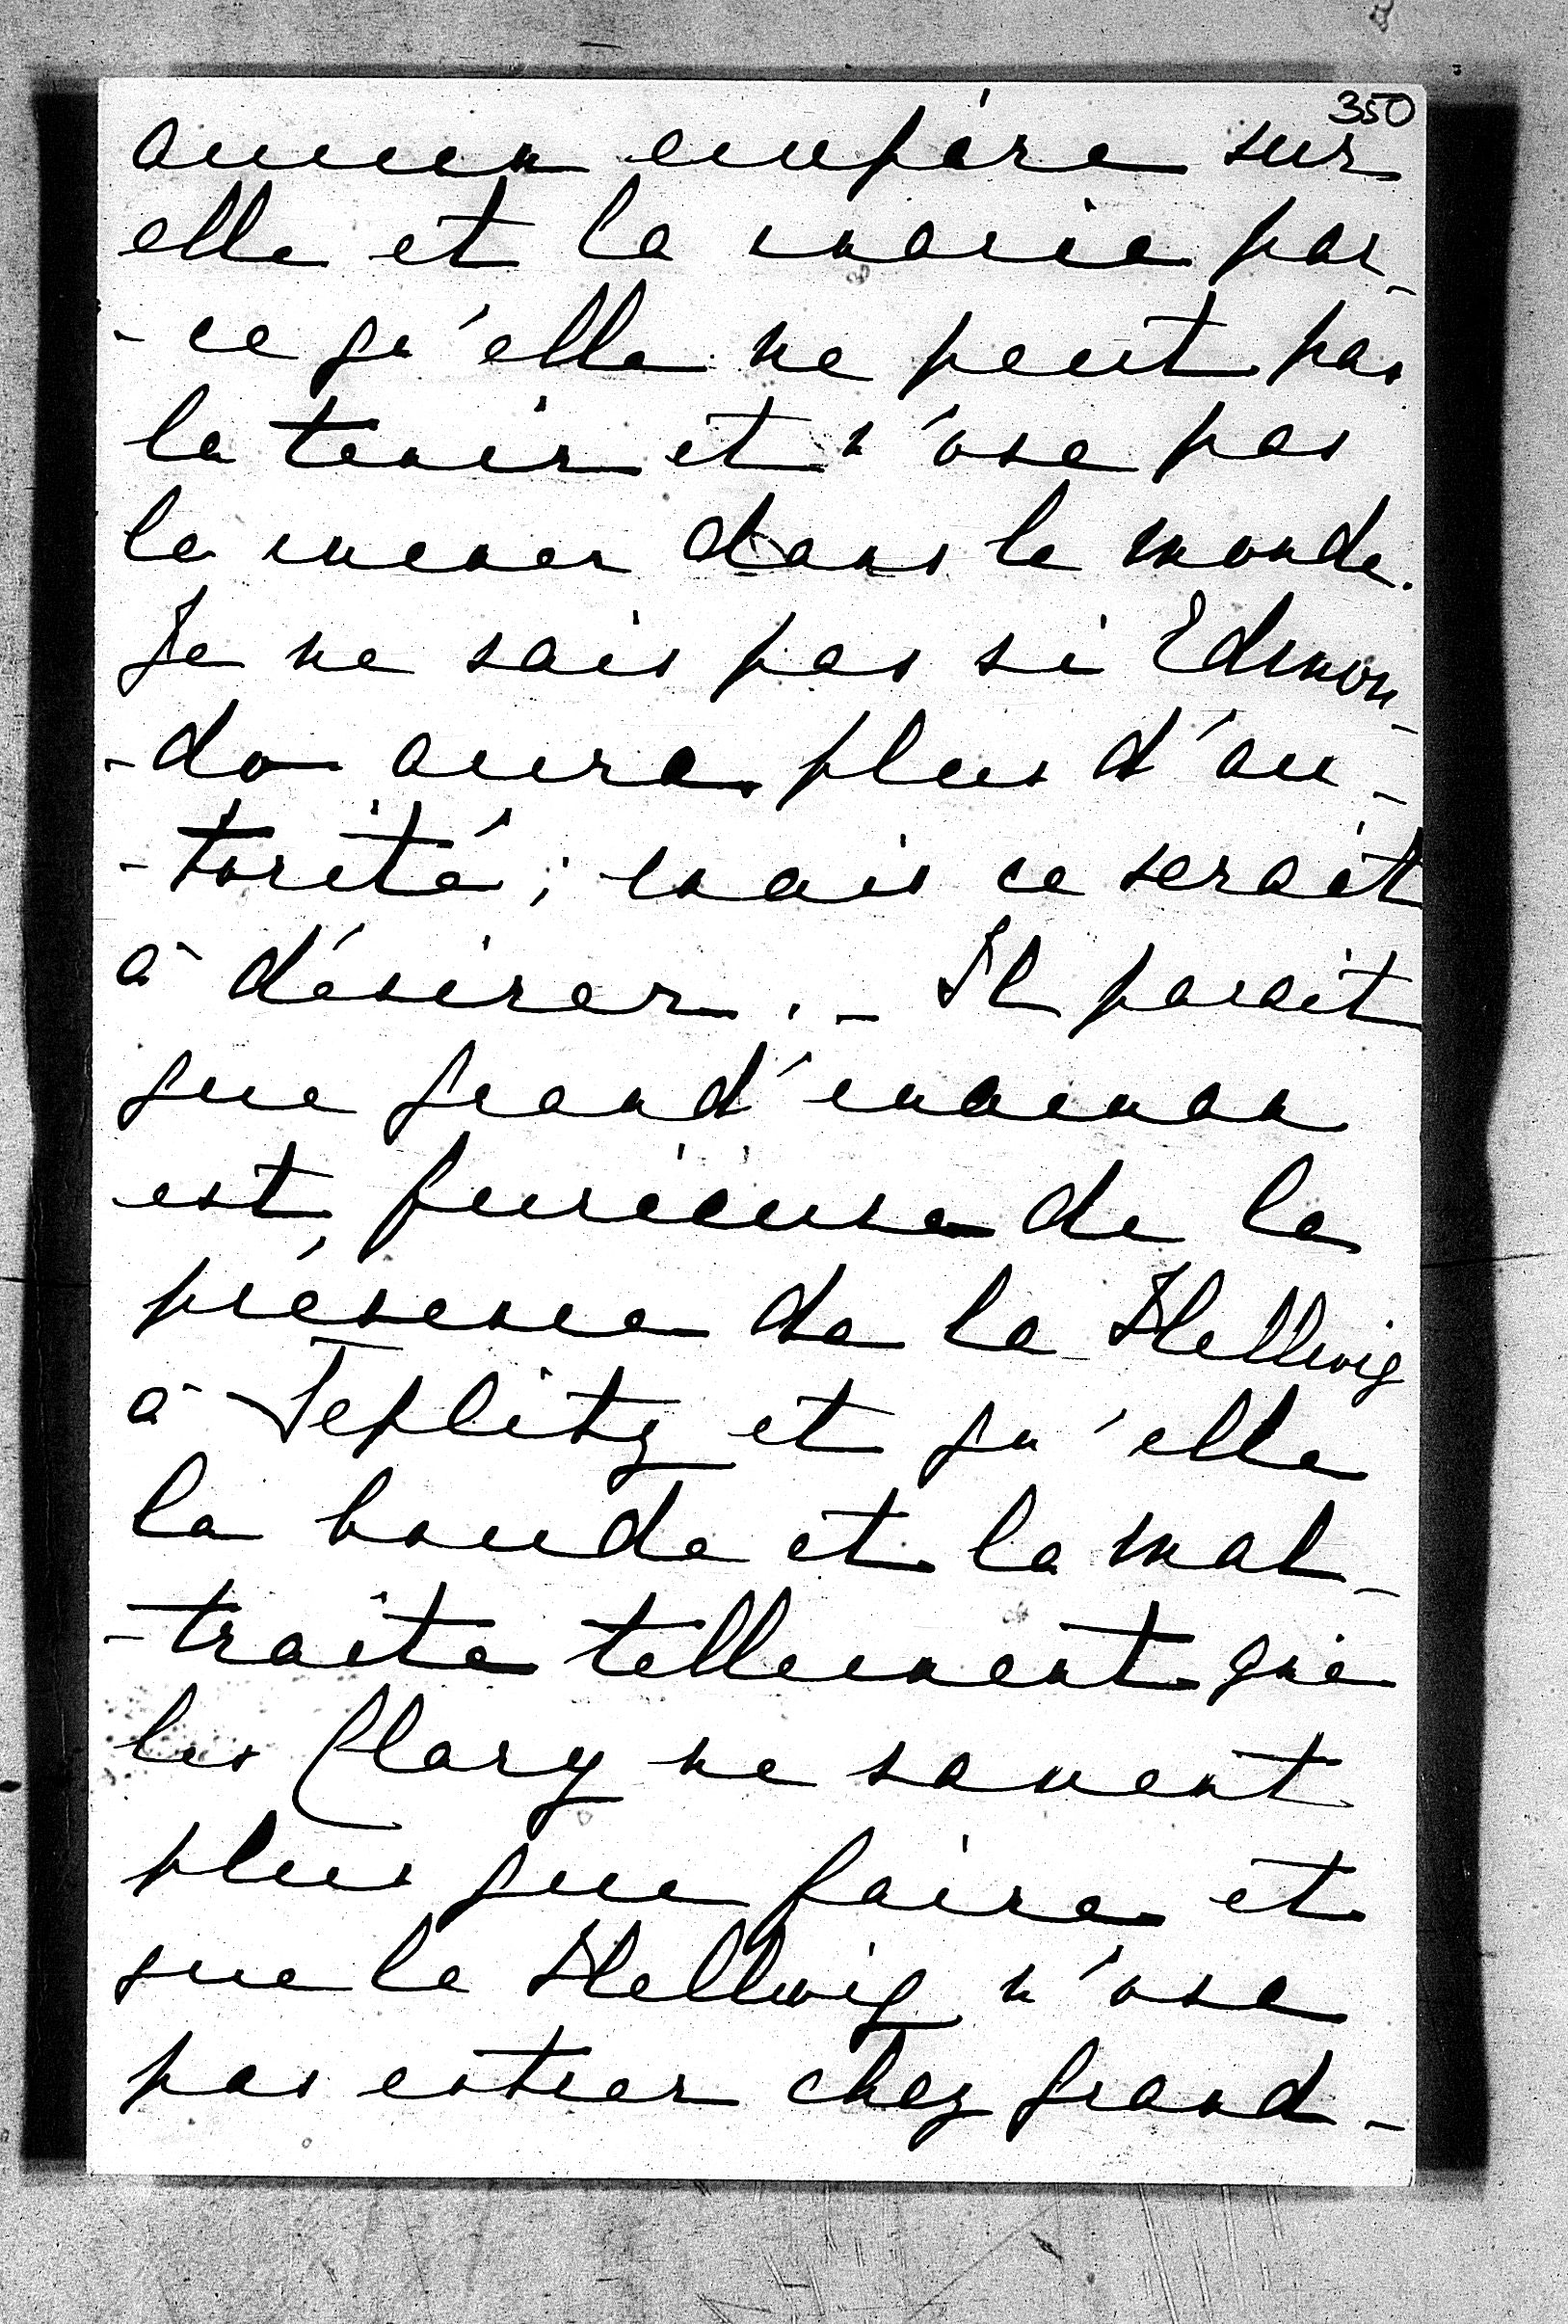 350
aucun empire sur
elle et la marie par-
-ce qu'elle ne peut pas
la tenir et n'ose pas
la mener dans le monde.
Je ne sais pas si Edmon-
-do aura plus d'au-
-torité ; mais ce serait
à désirer. - Il parait
que grand'maman
est furieuse de la
présence de la Hellwig
à Teplitz et qu'elle
la boude et la mal-
-traite tellement que
les Clary ne savent
plus que faire et
que la Hellwig n'ose
pas entrer chez grand-